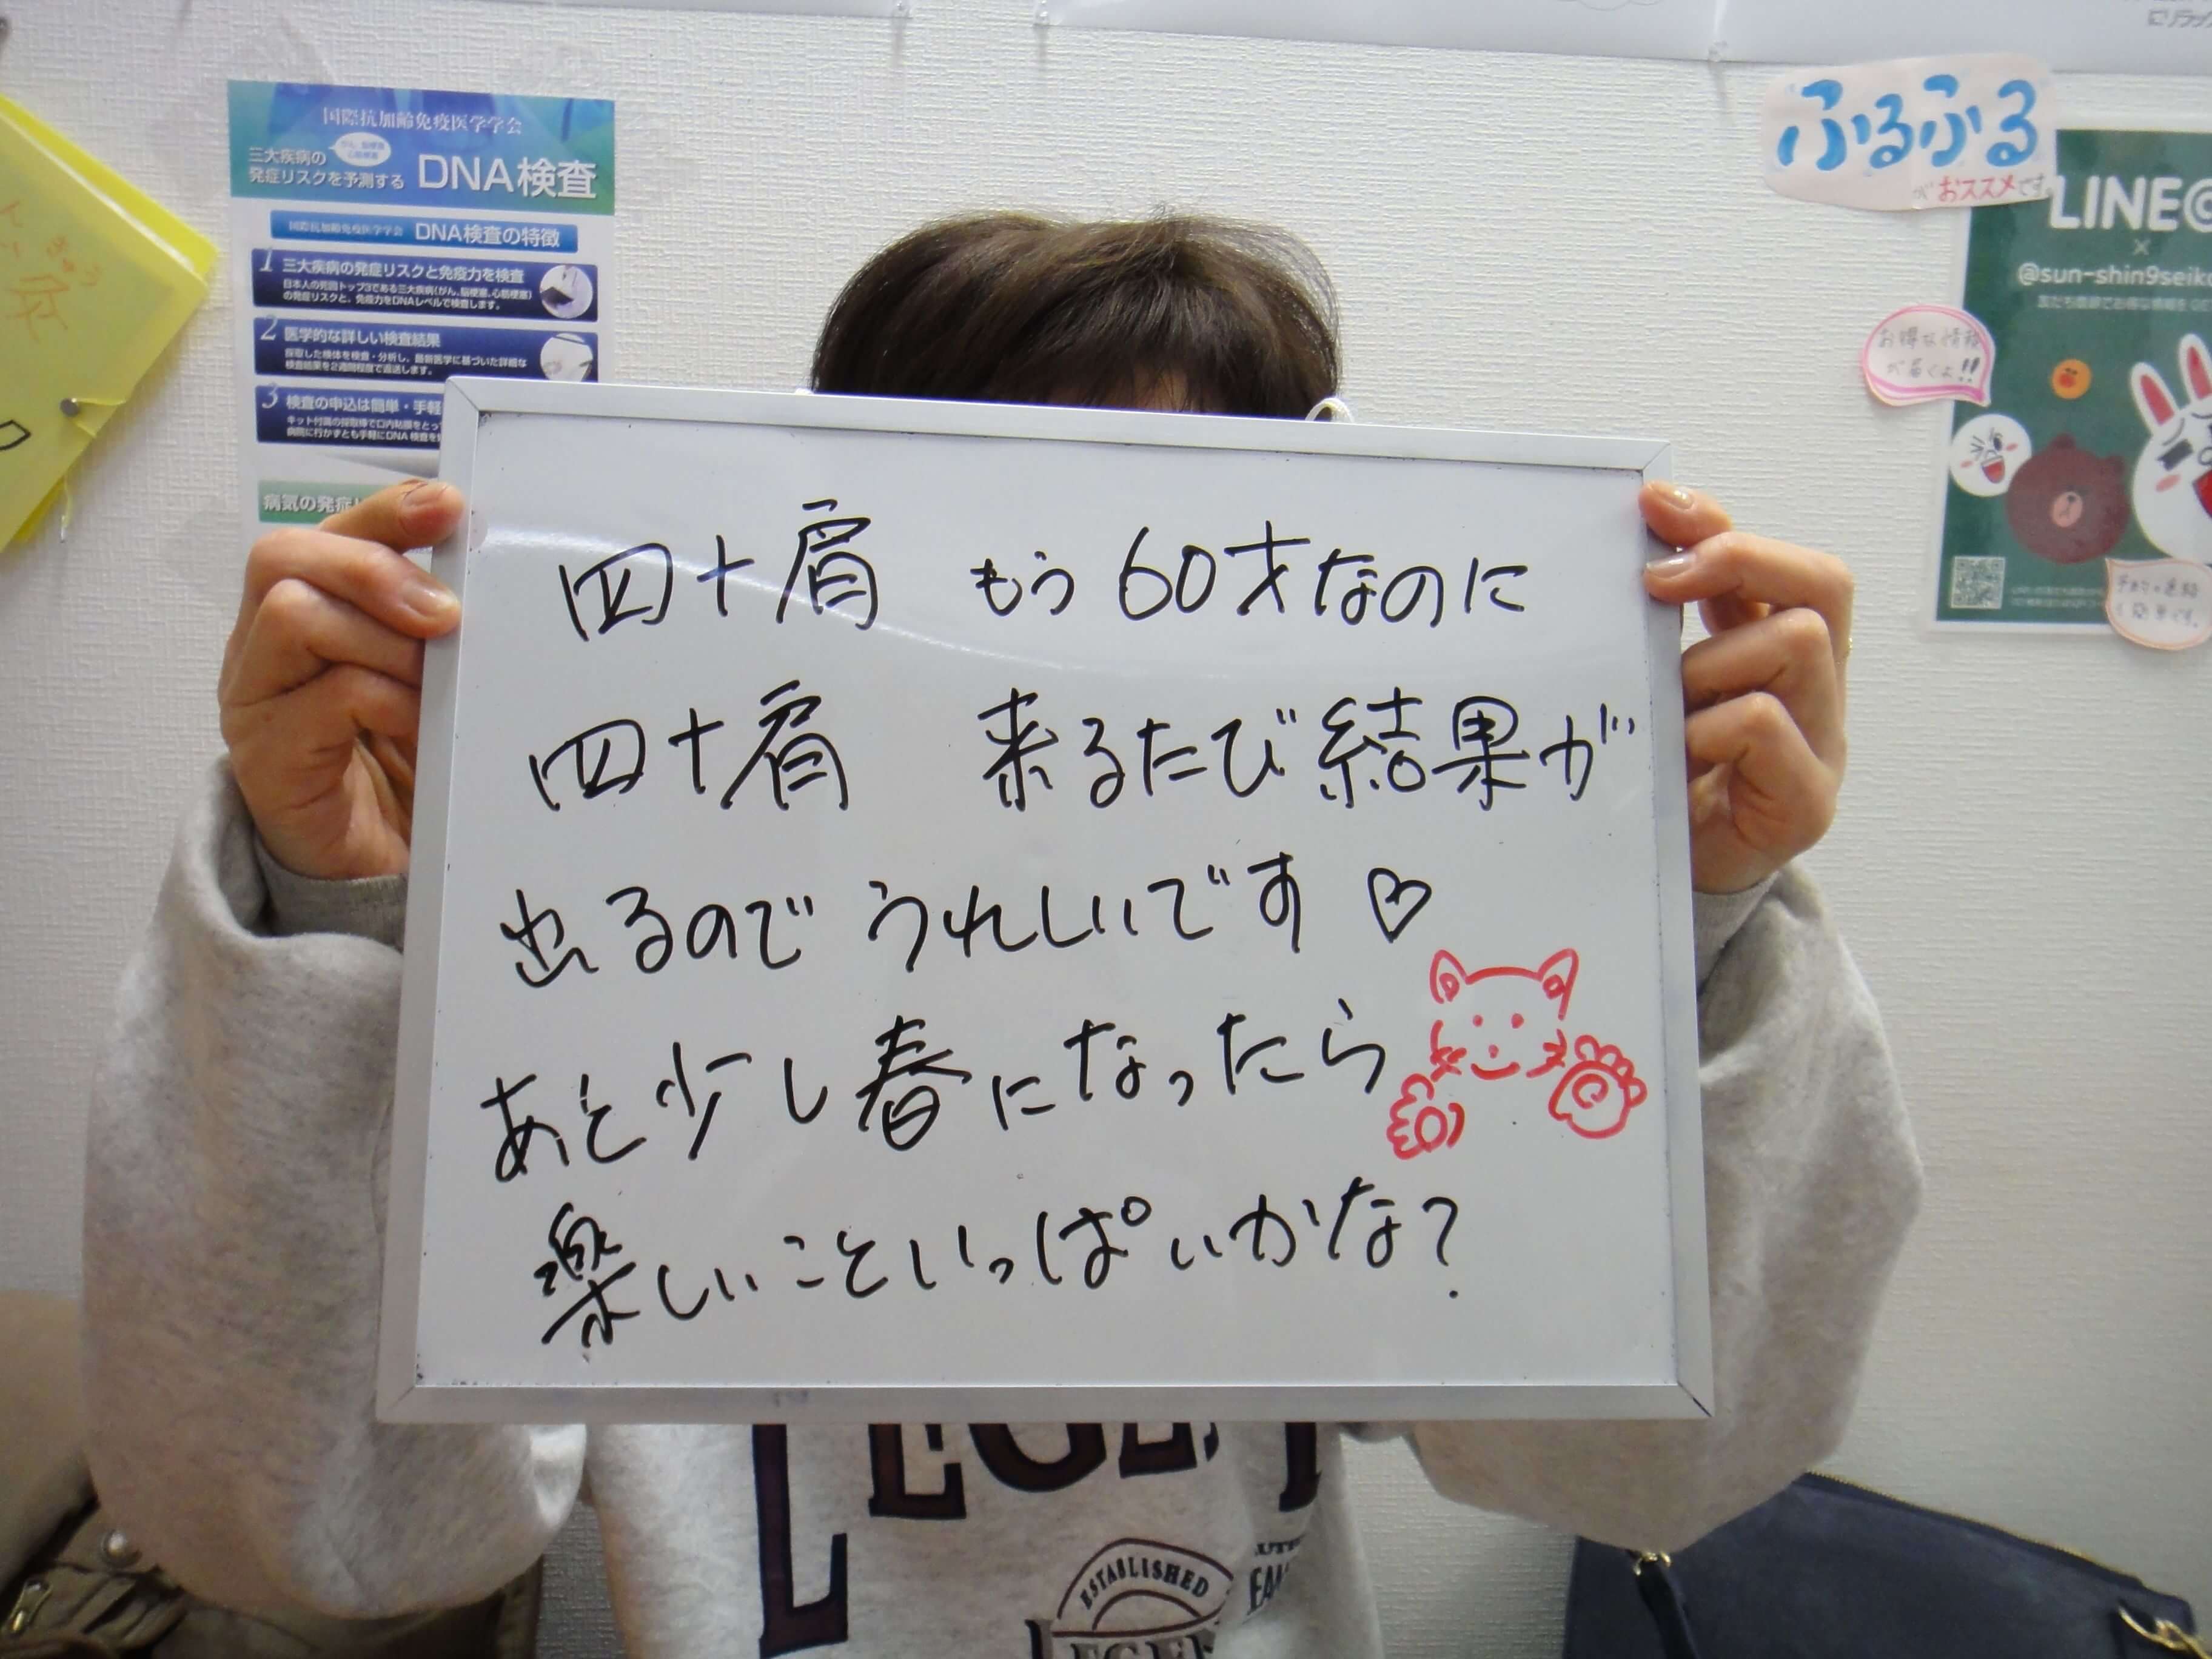 国際抗加齢免疫医学学会
三大疾病の
発症リスクを予測する
がん、脳梗塞
心筋梗塞
DNA検査
国際抗加齢免疫医学学会 DNA検査の特徴
1 三大疾病の発症リスクと免疫力を検査
日本人の死因トップ3である三大疾病(がん、脳梗塞、心筋梗塞)
の発症リスクと、免疫力をDNAレベルで検査します。
2 医学的な詳しい検査結果
採取した検体を検査・分析し、最新医学に基づいた詳細な
検査結果を2週間程度で返送します。
3 検査の申込は簡単・手軽
キット付属の採取棒で口内粘膜をとっ
病院に行かずとも手軽にDNA検査を
病気の発症
ふるふる
がおススメです。
LINE@
×
@sun-shin9seik
お得な情報
が届くよ!!
四十肩 もう60才なのに
四十肩 来るたび結果が
出るので うれしいです♡
あと少し春になったら
楽しいこといっぱいかな?
ESTABLISHED